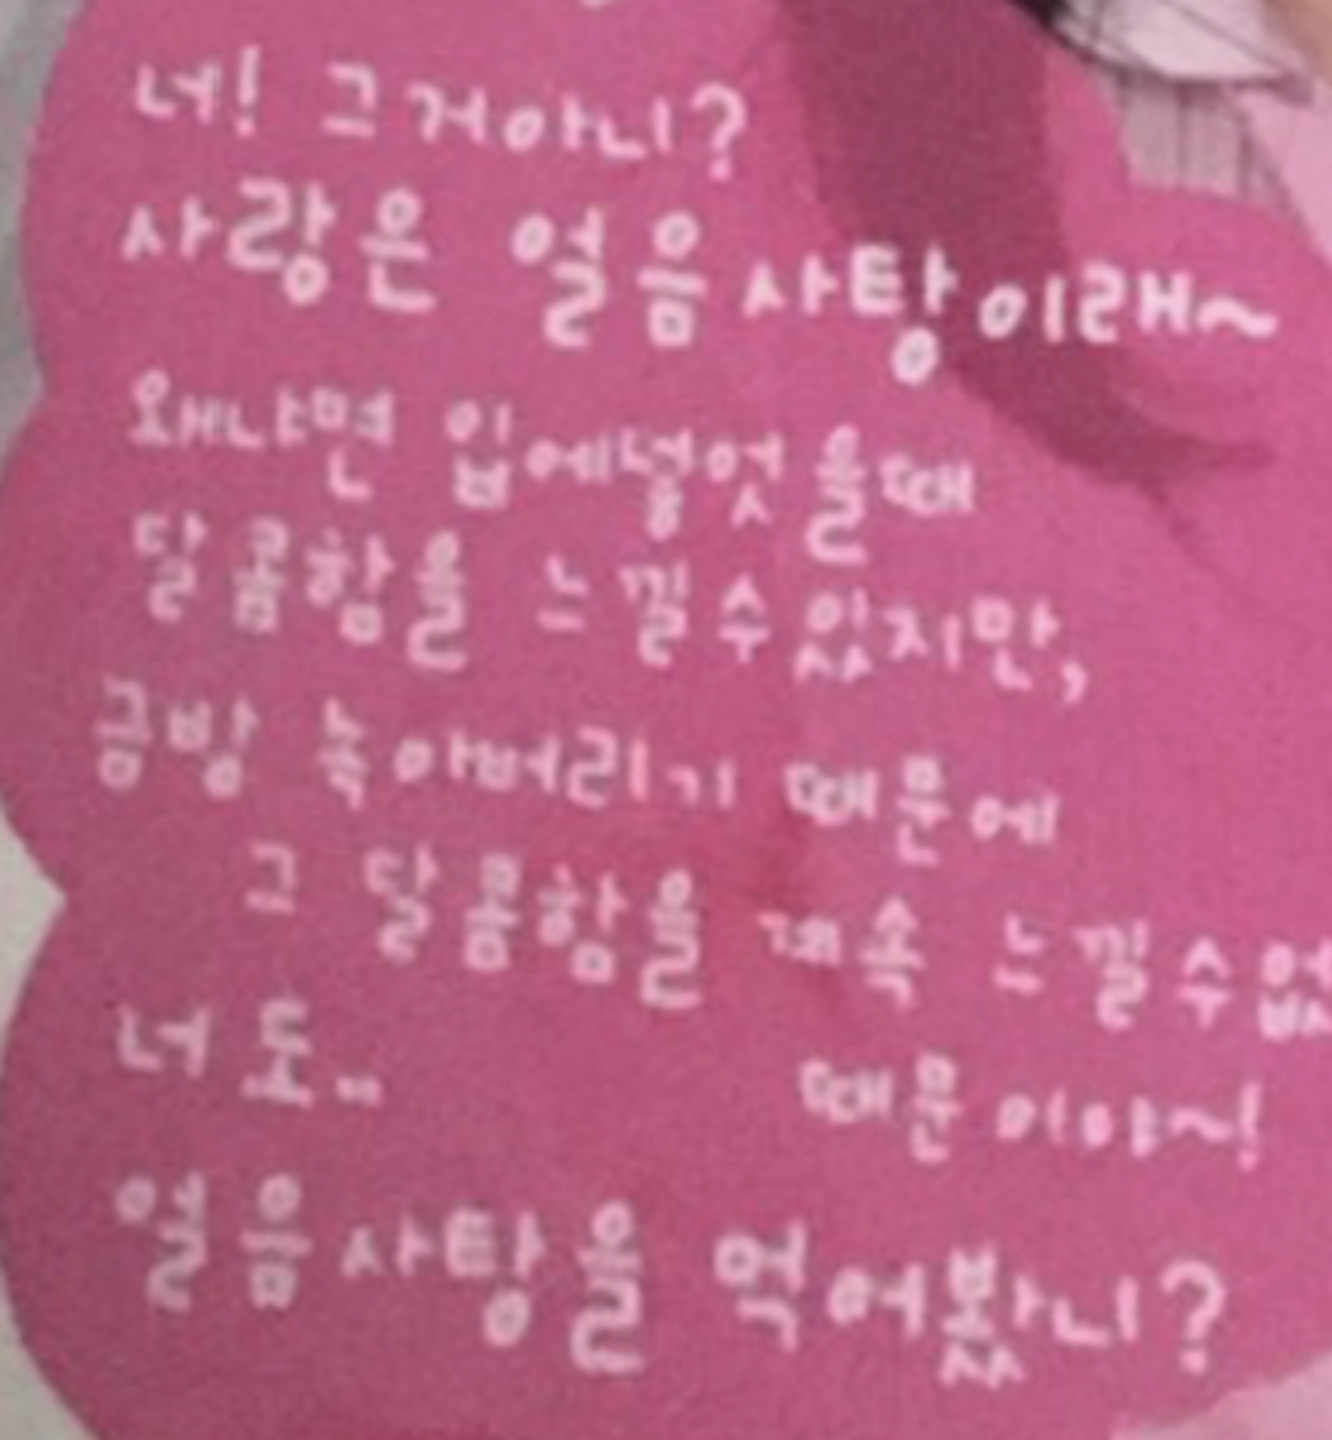 너! 그거아니?
사랑은 얼음사탕이래~
왜냐면 입에넣엇을때
달콤함을 느낄수있지만,
금방 녹아버리기 때문에
그 달콤함을 계속 느낄수없
때문이야~!
너도..
얼음사탕을 먹어봤니?